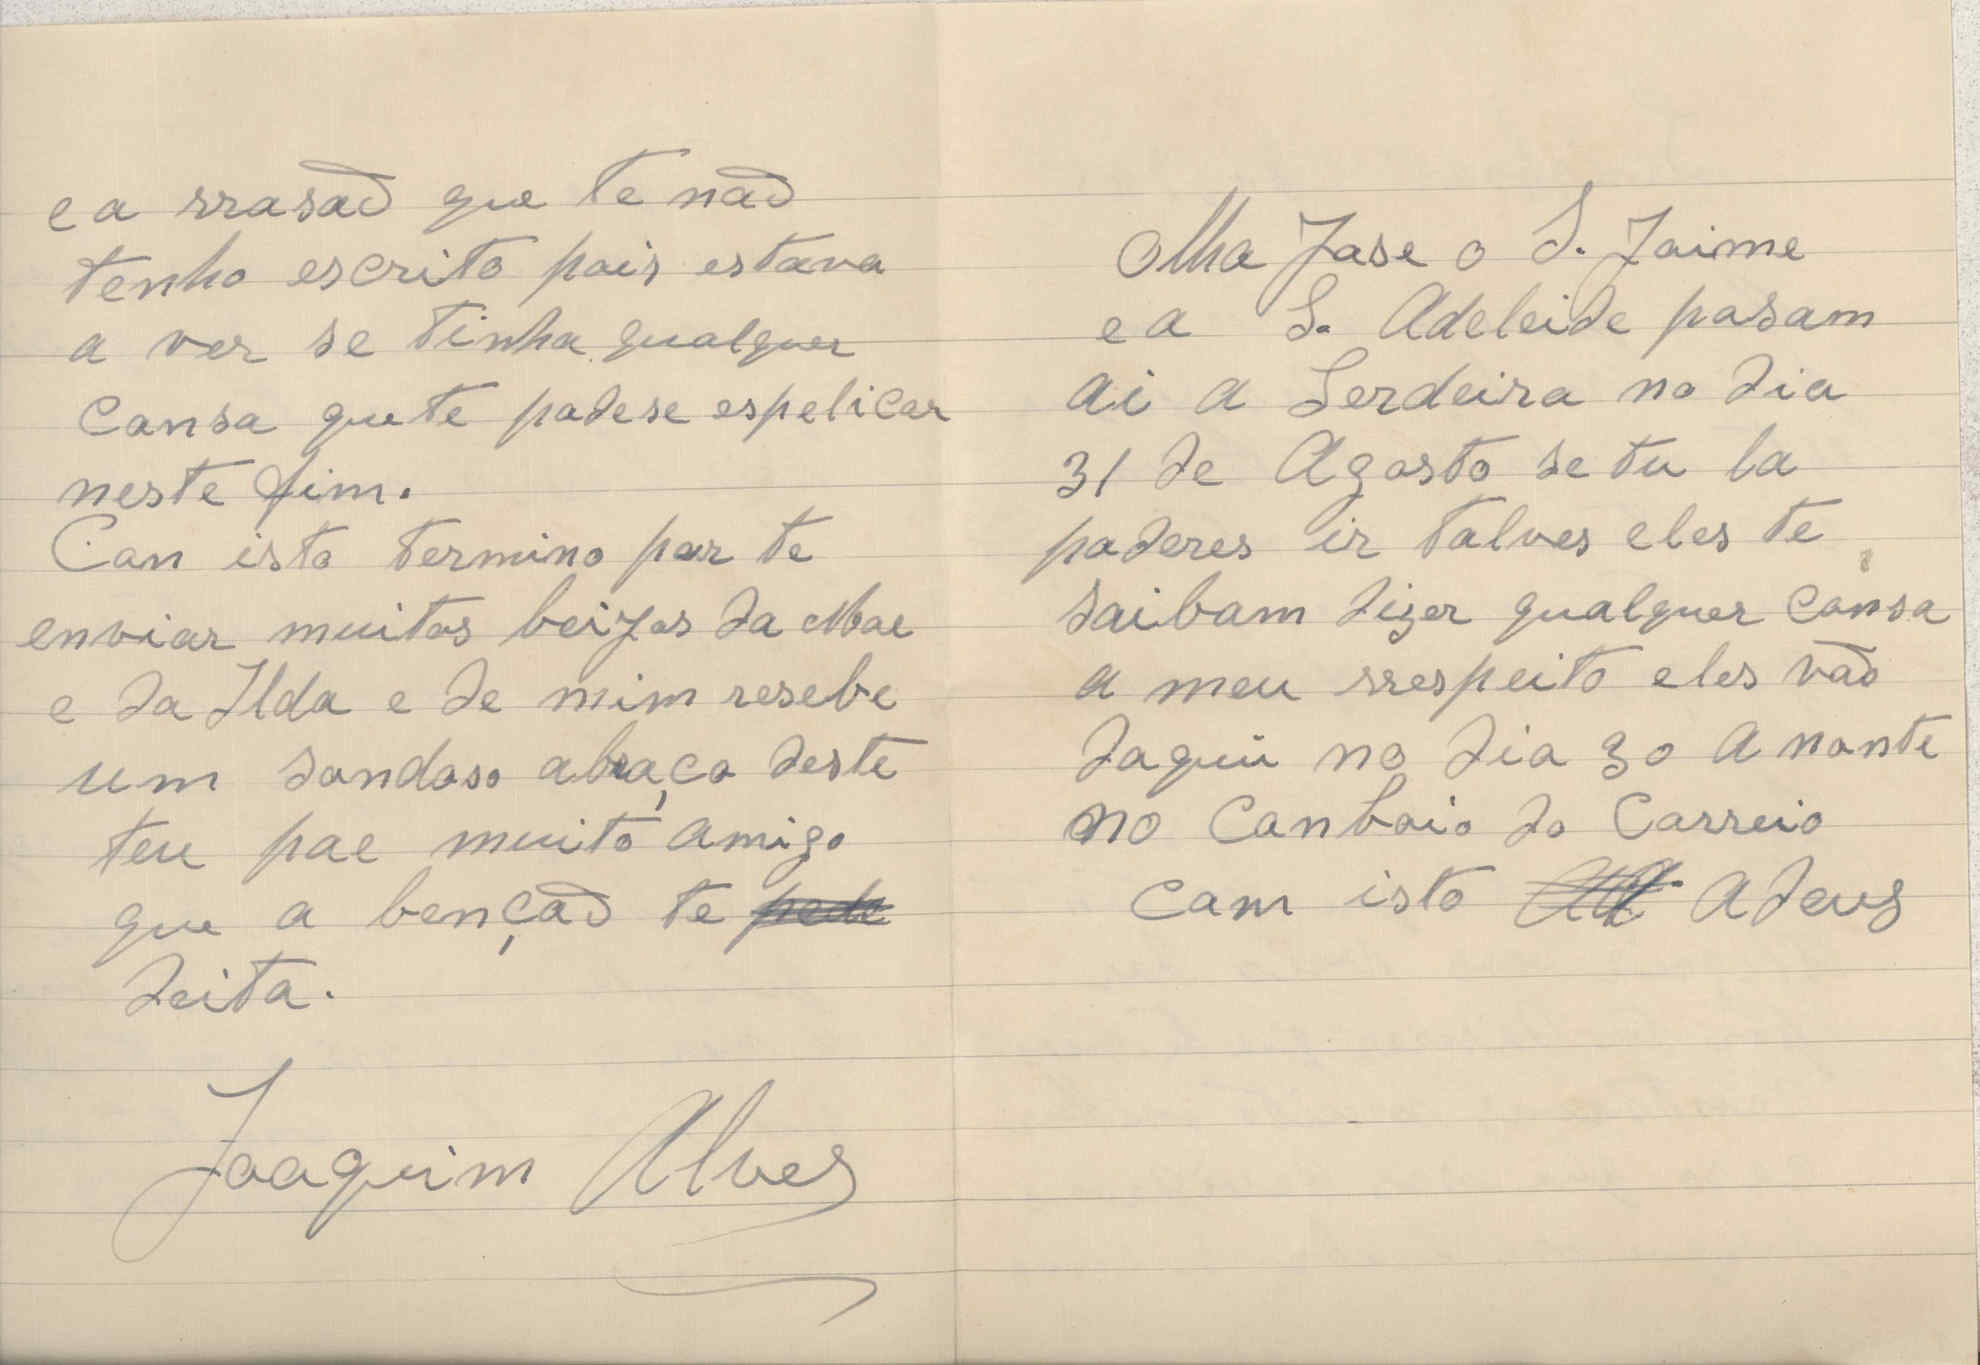 e a rrasaõ que te naõ
tenho escrito pois estava
a ver se tinha qualquer
cousa que te podese espelicar
neste fim.
Con isto termino por te
enviar muitos beijos da Mae
e da Ilda e de mim resebe
um saudoso abraço deste
teu pae muito amigo
que a bençaõ te pede
deita.
Joaquim Alves
Olha Jose o S. Jaime
e a S. Adeleide pasam
ai a Serdeira no dia
31 de Agosto se tu la
poderes ir talves eles te
saibam dizer qualquer cousa
a meu rrespeito eles vaõ
daqui no dia 30 a noute
no Conboio do Correio
com isto Adeus